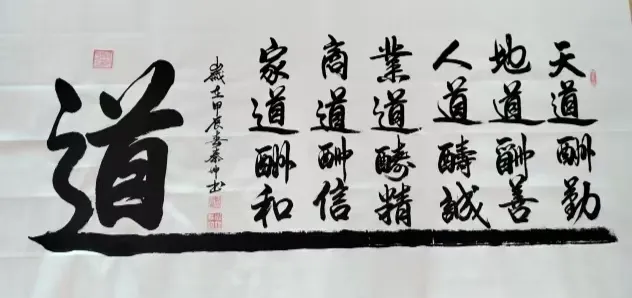 天道酬勤
地道酬善
人道醻誠
業道醻精
商道酬信
家道酬和
歲在甲辰春
道